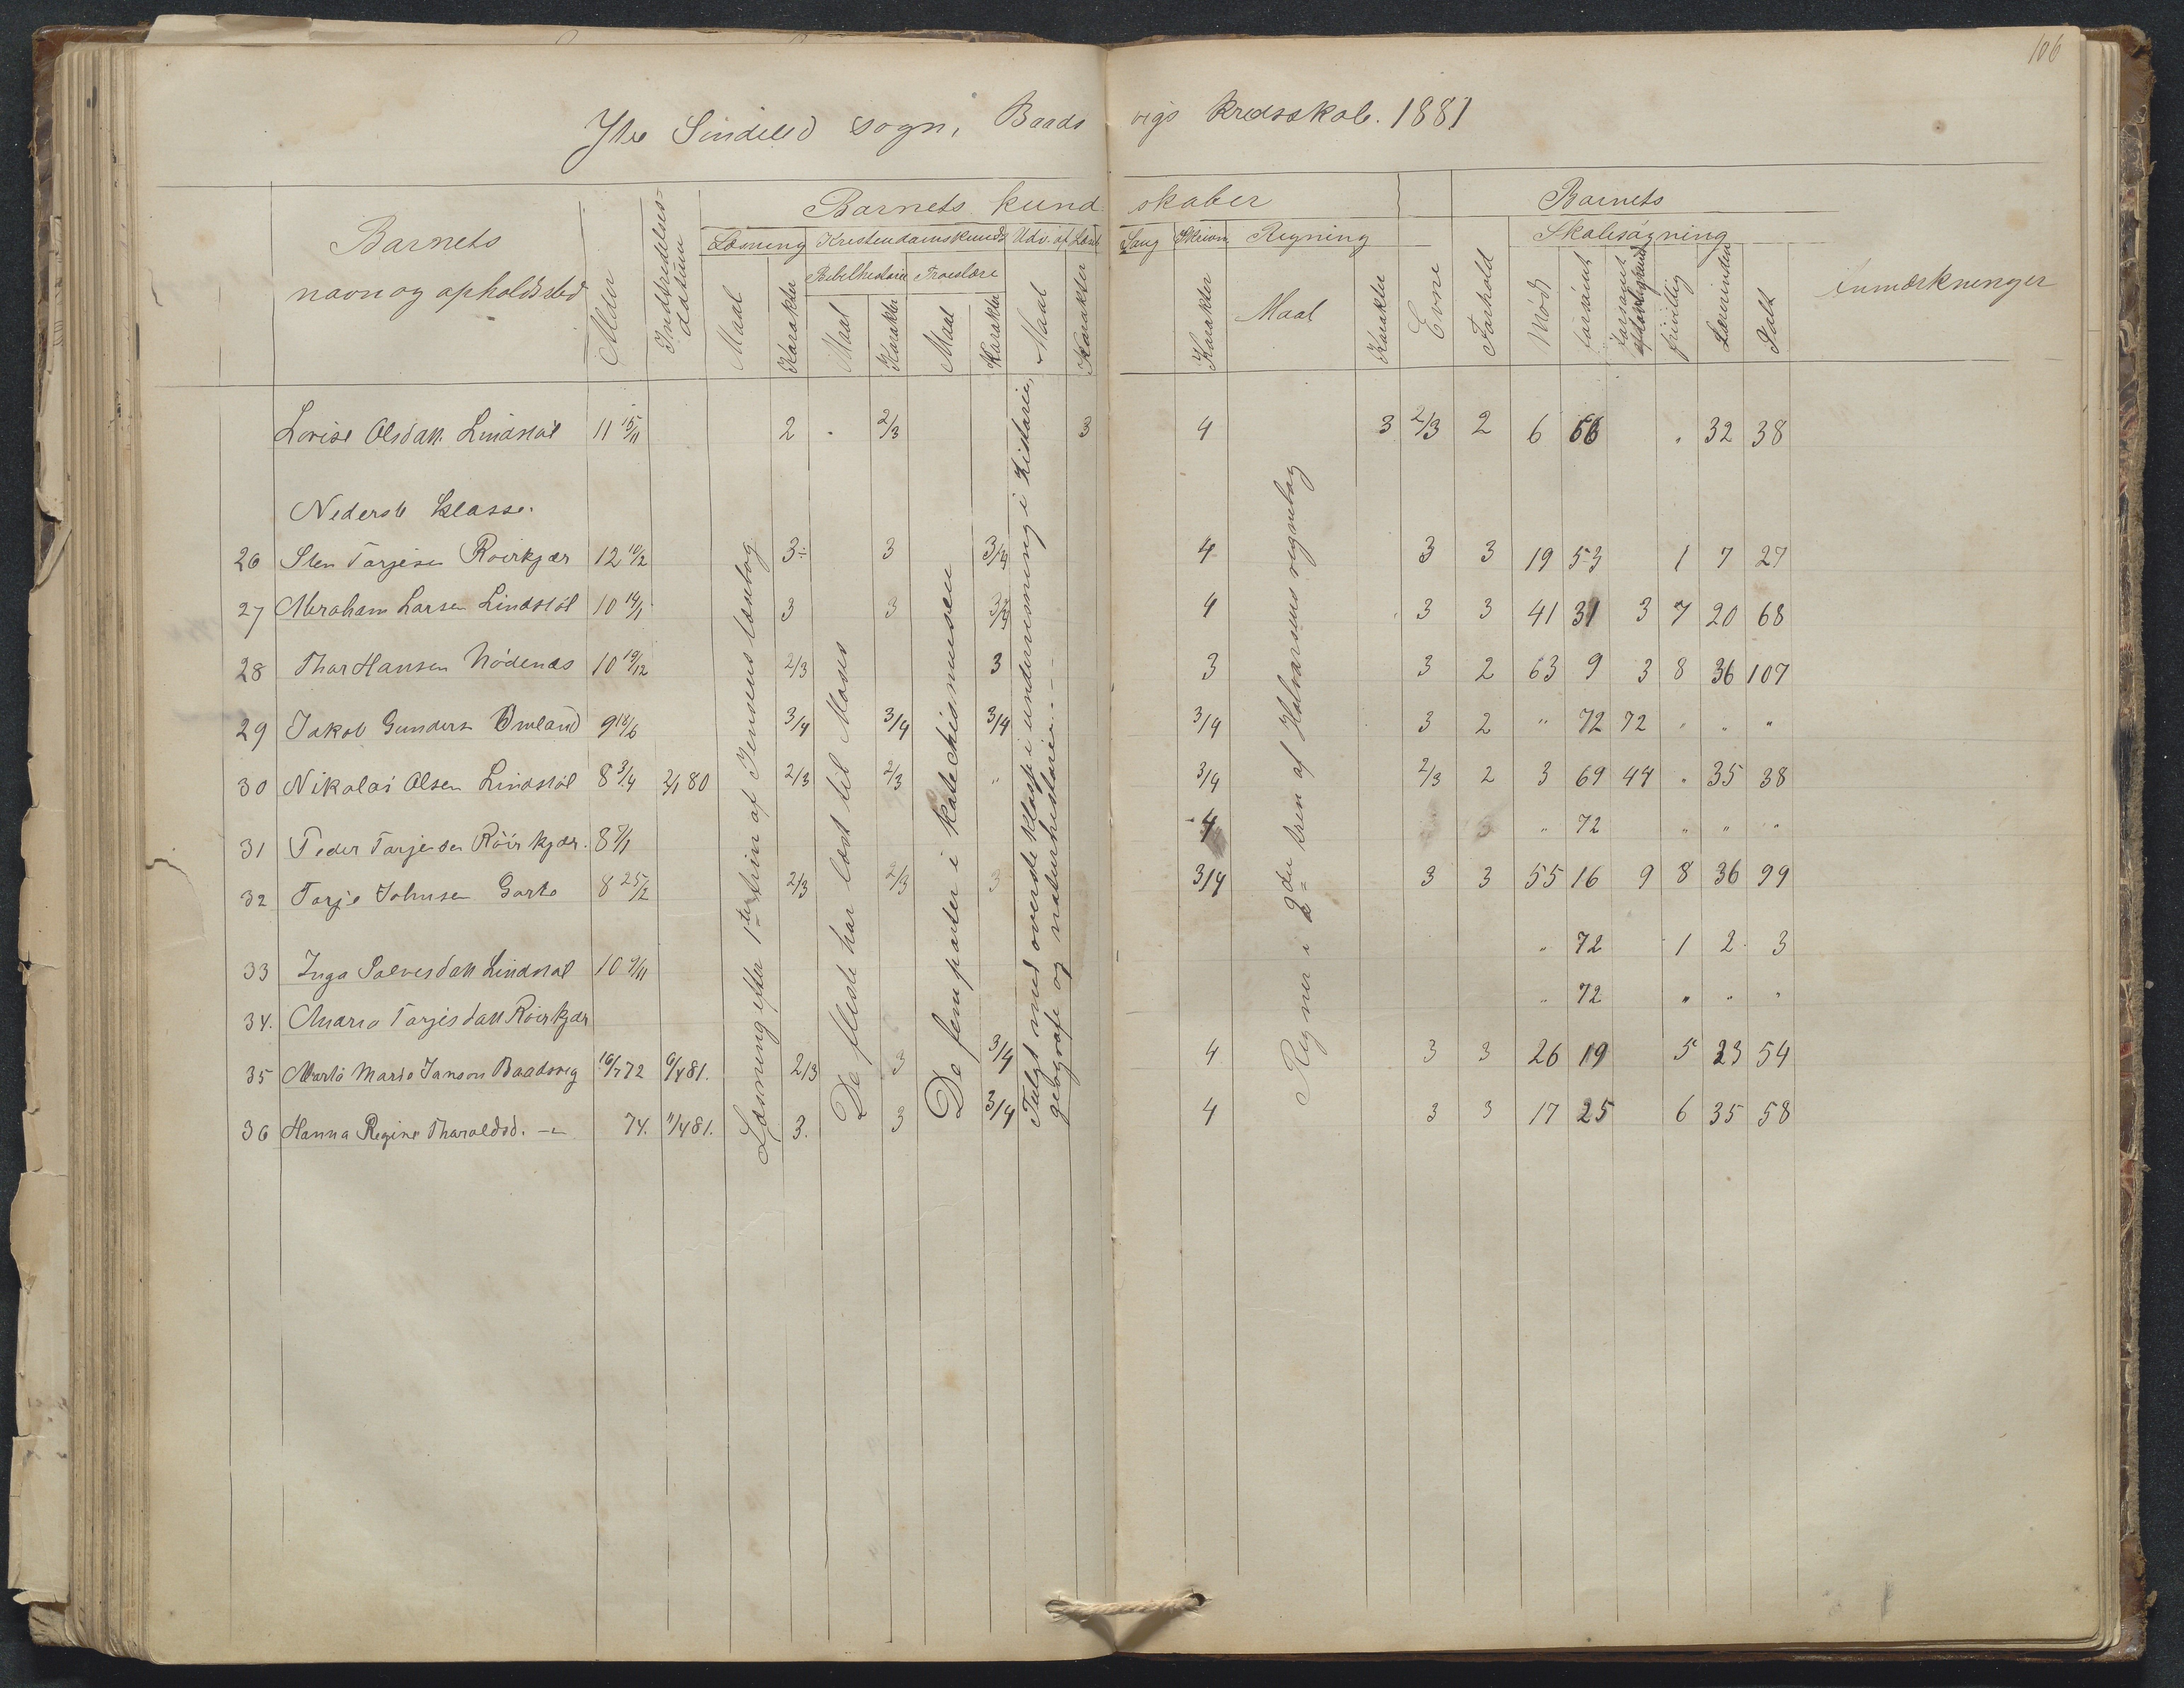 106
Ytre Sindeled sogn, Baadsvigs kredsskole. 1881
Barnets navn og opholdssted
Alder
Indtrædelsesdatum
Barnets kundskaber
Læsning
Maal
Karakter
Kristendomskunds
Bibelhistorie
Maal
Karakter
Troeslære
Maal
Karakter
Udv. af Læseb
Maal
Karakter
Sang
Skrivn
Karakter
Regning
Maal
Karakter
Evne
Forhold
Barnets
Skolesøgning
Mødt
forsømt
frivillig
Lærerinden
Ialt
Anmærkninger
Lovise Olsdatt. Lindstøl 11 15/11 2 2/3 3 4 3 2/3 2 6 66 " 32 38
Nederste klasse.
26 Sten Tarjesen Røirkjær 12 10/2 3 3 3/4 4 3 3 19 53 1 7 27
27 Abraham Larsen Lindstøl 10 14/1 3 3 3/4 4 3 3 41 31 3 7 20 68
28 Thor Hansen Nødenæs 10 19/12 2/3 3 3 3 2 63 9 3 8 36 107
29 Jakob Gunders Omland 9 18/6 3/4 3/4 3/4 3/4 3 2 " 72 72 " " "
30 Nikolai Olsen Lindstøl 8 3/4 2/1 80 2/3 2/3 " 3/4 2/3 2 3 69 44 " 35 38
31 Peder Tarjesen Røirkjær. 8 7/1 4 3 " 72 " " "
32 Tarje Johnsen Garte 8 25/2 2/3 2/3 3 3/4 3 3 55 16 9 8 36 99
33 Inga Salvesdatt Lindstøl 10 9/11 " 72 1 2 3
34. Anna Tarjesdatt Røirkjær " 72 " " "
35 Marta Marie Janson Baadsvig 16/7 72 6/4 81. 2/3 3 3/4 4 3 3 26 19 5 23 54
36 Hanna Regine Tharaldsd. — " — 74. 11/4 81. 3. 3 3/4 4 3 3 17 25 6 35 58
Læsning efter 1ste trin af Jensens læsebog
De fleste har læst til Moses
De fem parter i katechismusen
Fulgt med øverste klasse i undervisning i historie,
geografi og naturhistorie
Regner i 2den tren af Halvorsens regnebog